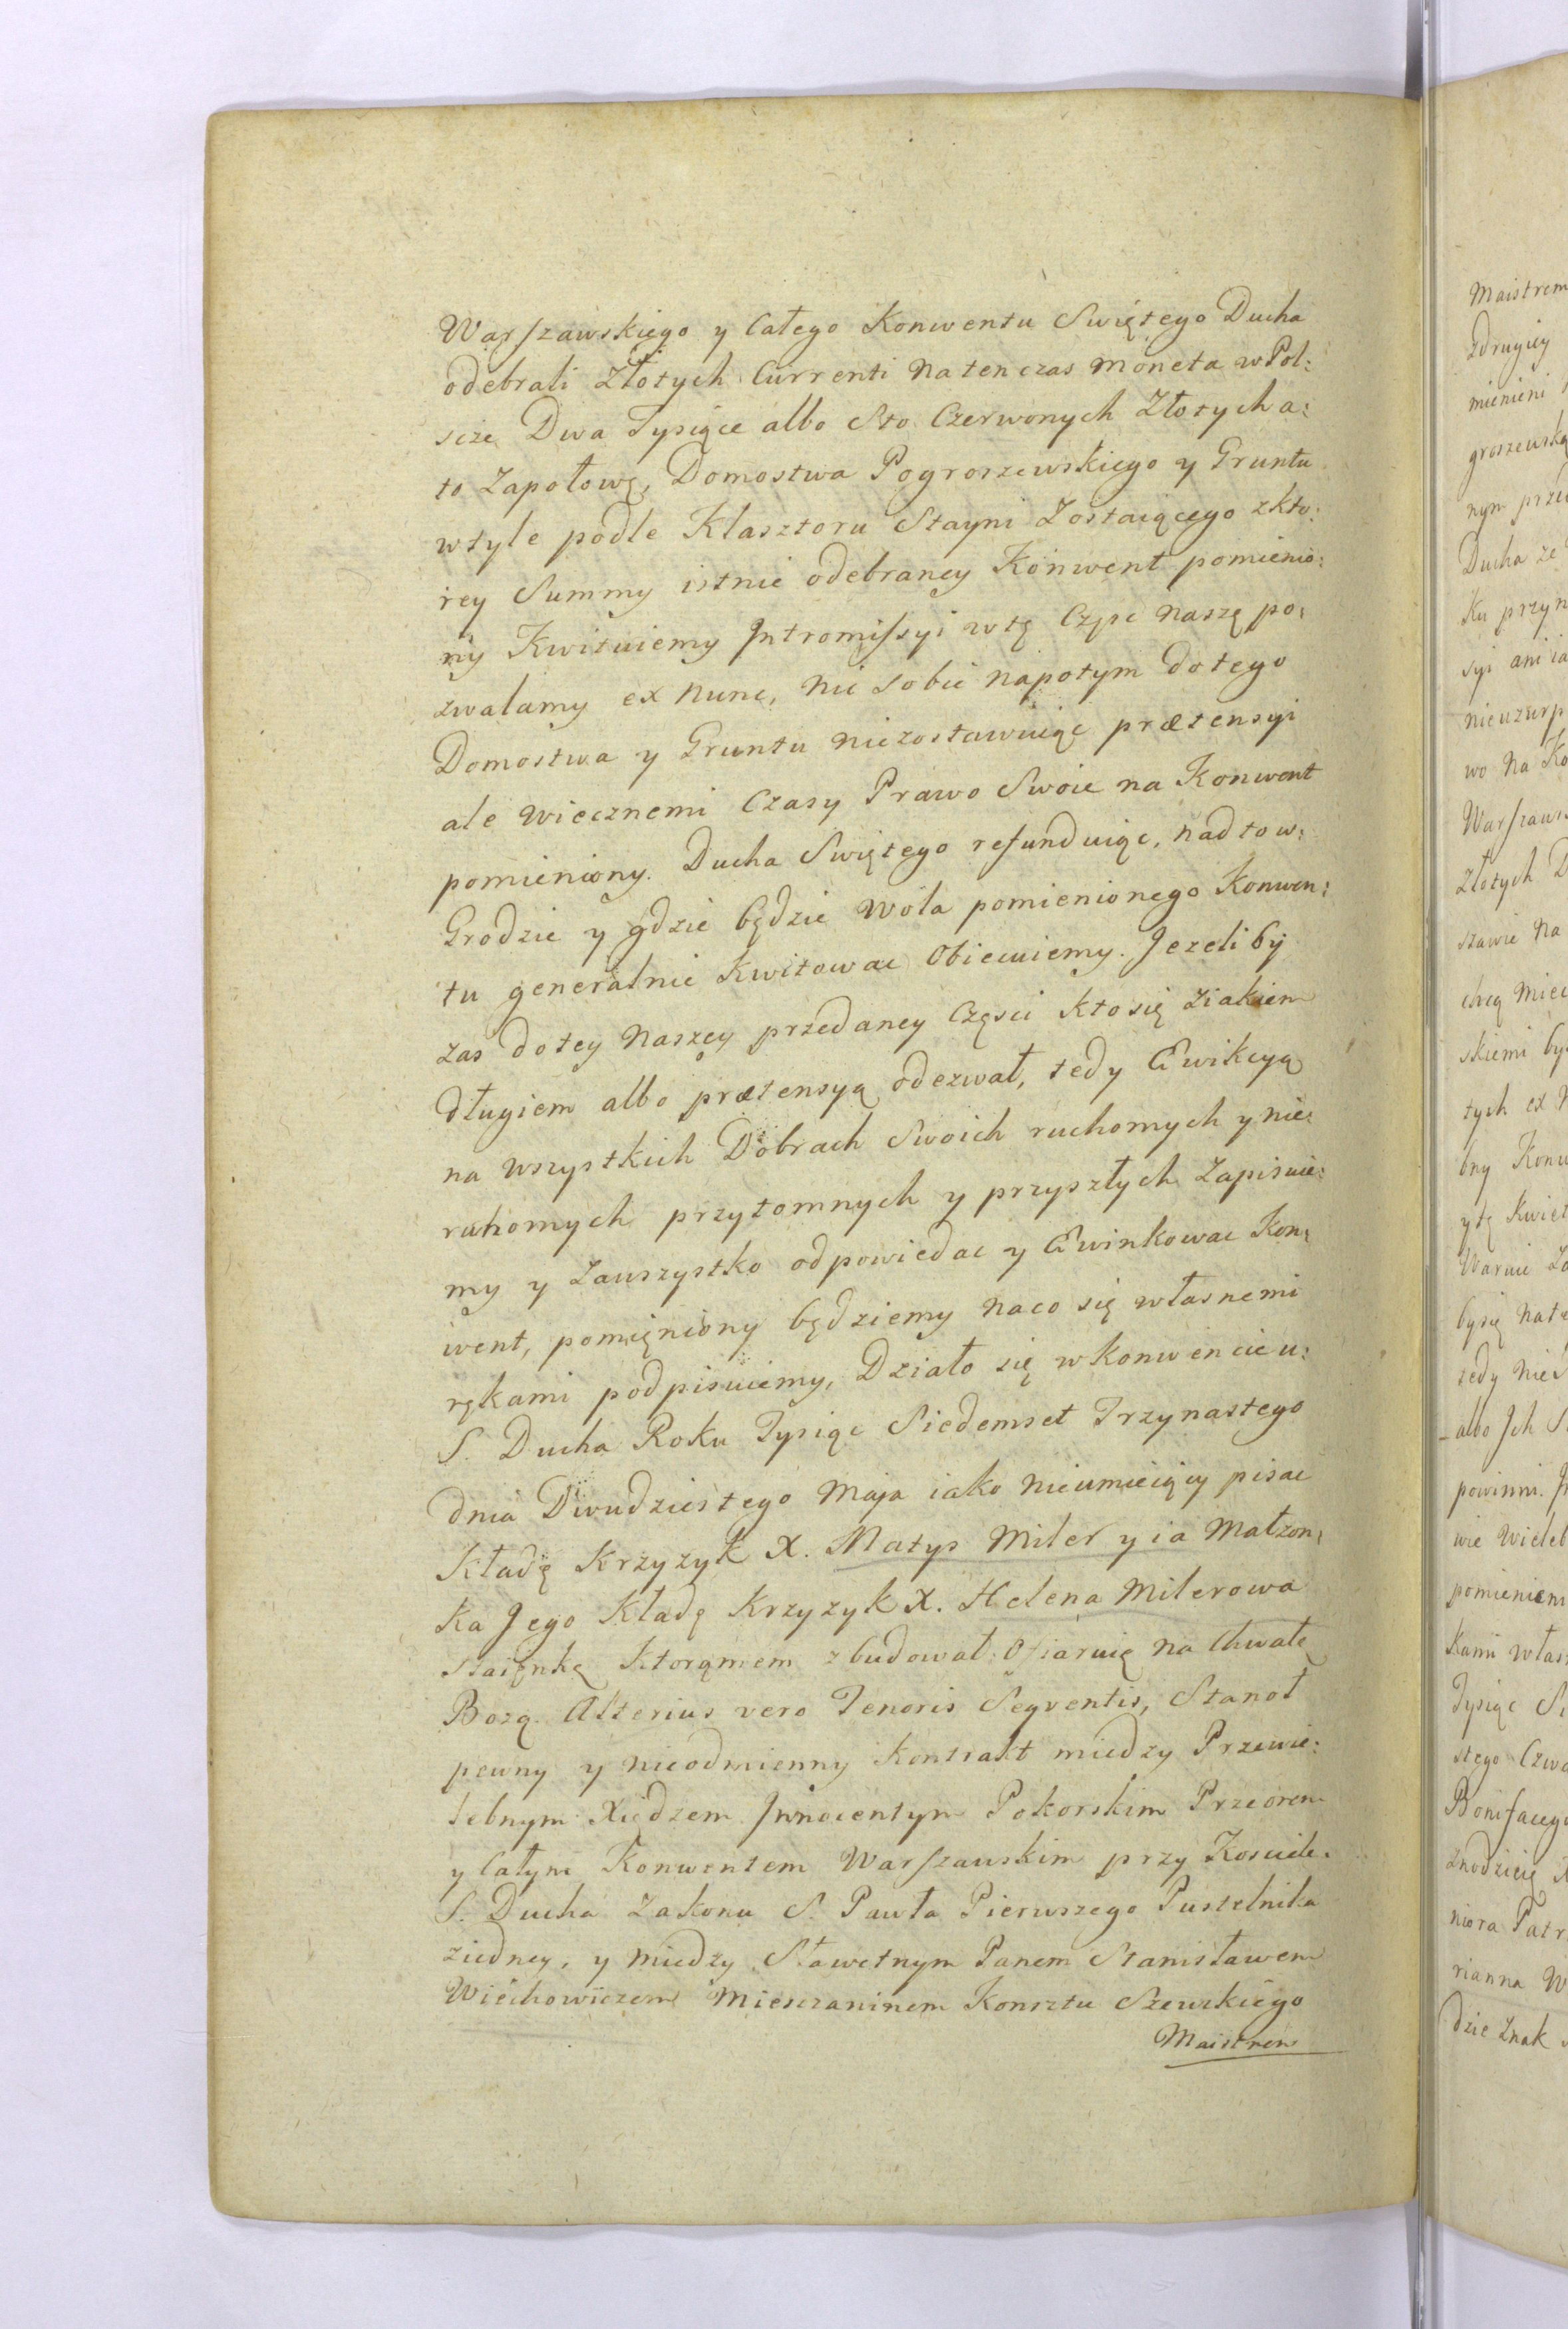 Warszawskiego y Całego Konwentu Swiętego Ducha
odebrali Złotych Currenti na ten czas moneta w Pol:
scze Dwa Tysiące albo Sto Czerwonych Złotych a:
to Zapołowę, Domostwa Pogroszewskiego y Gruntu
wtyle podle Klasztoru Stayni Zostaiącego zkto:
rey Summy istnie odebraney Konwent pomienio:
ny Kwituiemy Intromissyi wtę Częsc naszę po:
zwalamy ex nunc, nic sobie napotym dotego
Domostwa y Gruntu niezostawuiąc prætensyi
ale Wiecznemi Czasy Prawo Swoie na Konwent
pomieniony. Ducha Swiętego refunduiąc, nadto w:
Grodzie y gdzie będzie Wola pomienionego Konwen:
tu generalnie Kwitowac Obiecuiemy. Jezeli by
zas dotey Naszey przedaney Częsci kto się ziakiem
długiem albo prætensyą odezwał, tedy Ewikcyą
na wszystkich Dobrach Swoich ruchomych y nie:
ruhomych przytomnych y przyszłych Zapisuie:
my y Zawszystko odpowiedac y Ewinkowac Kon:
went, pomięniony będziemy naco się własnemi
rękami podpisuiemy, Działo się w konwencie u:
S. Ducha Roku Tysiąc Siedemset Trzynastego
dnia Dwudziestego Maja iako nieumieiący pisac
Kładę Krzyzyk X. Matys Miler y ia Małzon:
ka Jego Kładę Krzyzyk X. Helena Milerowa
staięnkę Ktorąmem zbudował: Ofiaruię na Chwałę
Bozą. Alterius vero Tenoris Seqventis, Stanoł
pewny y nieodmienny kontrakt miedzy Przewie:
lebnym Xiędzem Innocentym Pokorskim Przeorem
y Całym Konwentem Warszawskim przy Kosciele.
S. Ducha Zakonu S. Pawła Pierwszego Pustelnika
ziedney, y miedzy Sławetnym Panem Stanisławem
Wiechowiczem Miesczaninem Konsztu Szewskiego
Maistrem
Maistrem
Zdrugiey
mienieni
groszewską
nym
Ducha ze
Ku
syi ani ia
nieuzurp
wo na Ko
Warszaws
Złotych D
stawie na
chcą miec
skiemi by
tych ex
bny Konw
y tę Kwiet
Warnie Za
by się nate
tedy nie
albo Ich S
powinni.
wie Wieleb
pomienieni
kami włas
Tysiąc Si
stego Czwa
Bonifacego
niora Patr
rianna W
dzie Znak